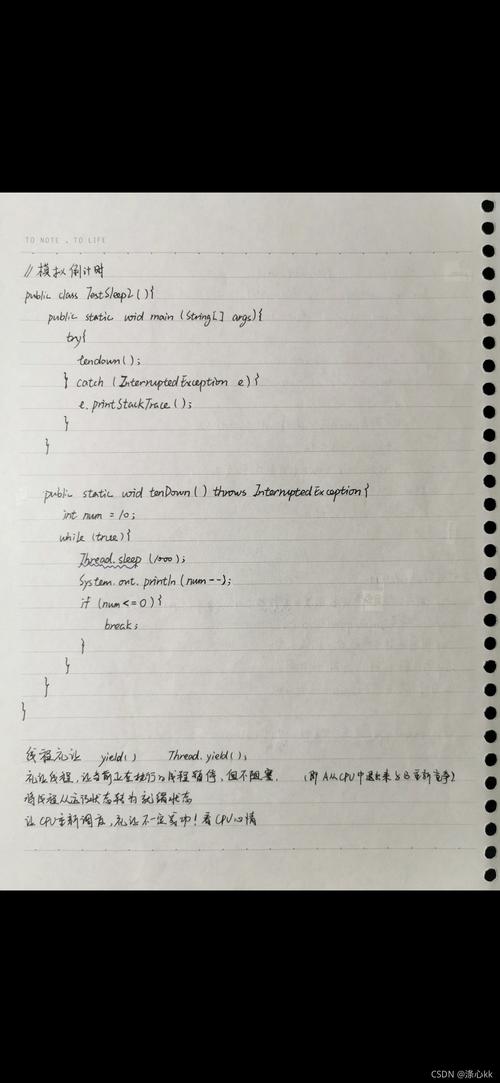 TO NOTE , TO LIFE
// 模拟倒计时
public class TestSleep2 (){
public static void main (String[] args){
try{
tendown();
} catch (InterruptedException e){
e.printStackTrace();
}
}
public static void tenDown() throws InterruptedException{
int num = 10;
while (true){
Thread.sleep (1000);
System.out.println(num--);
if (num<=0){
break;
}
}
}
}
线程礼让 yield() Thread.yield();
礼让线程，让当前正在执行的线程暂停，但不阻塞. (即 A从CPU中退出来与B重新竞争)
将线程从运行状态转为就绪状态
让CPU重新调度，礼让不一定成功！看CPU心情
CSDN @涤心kk